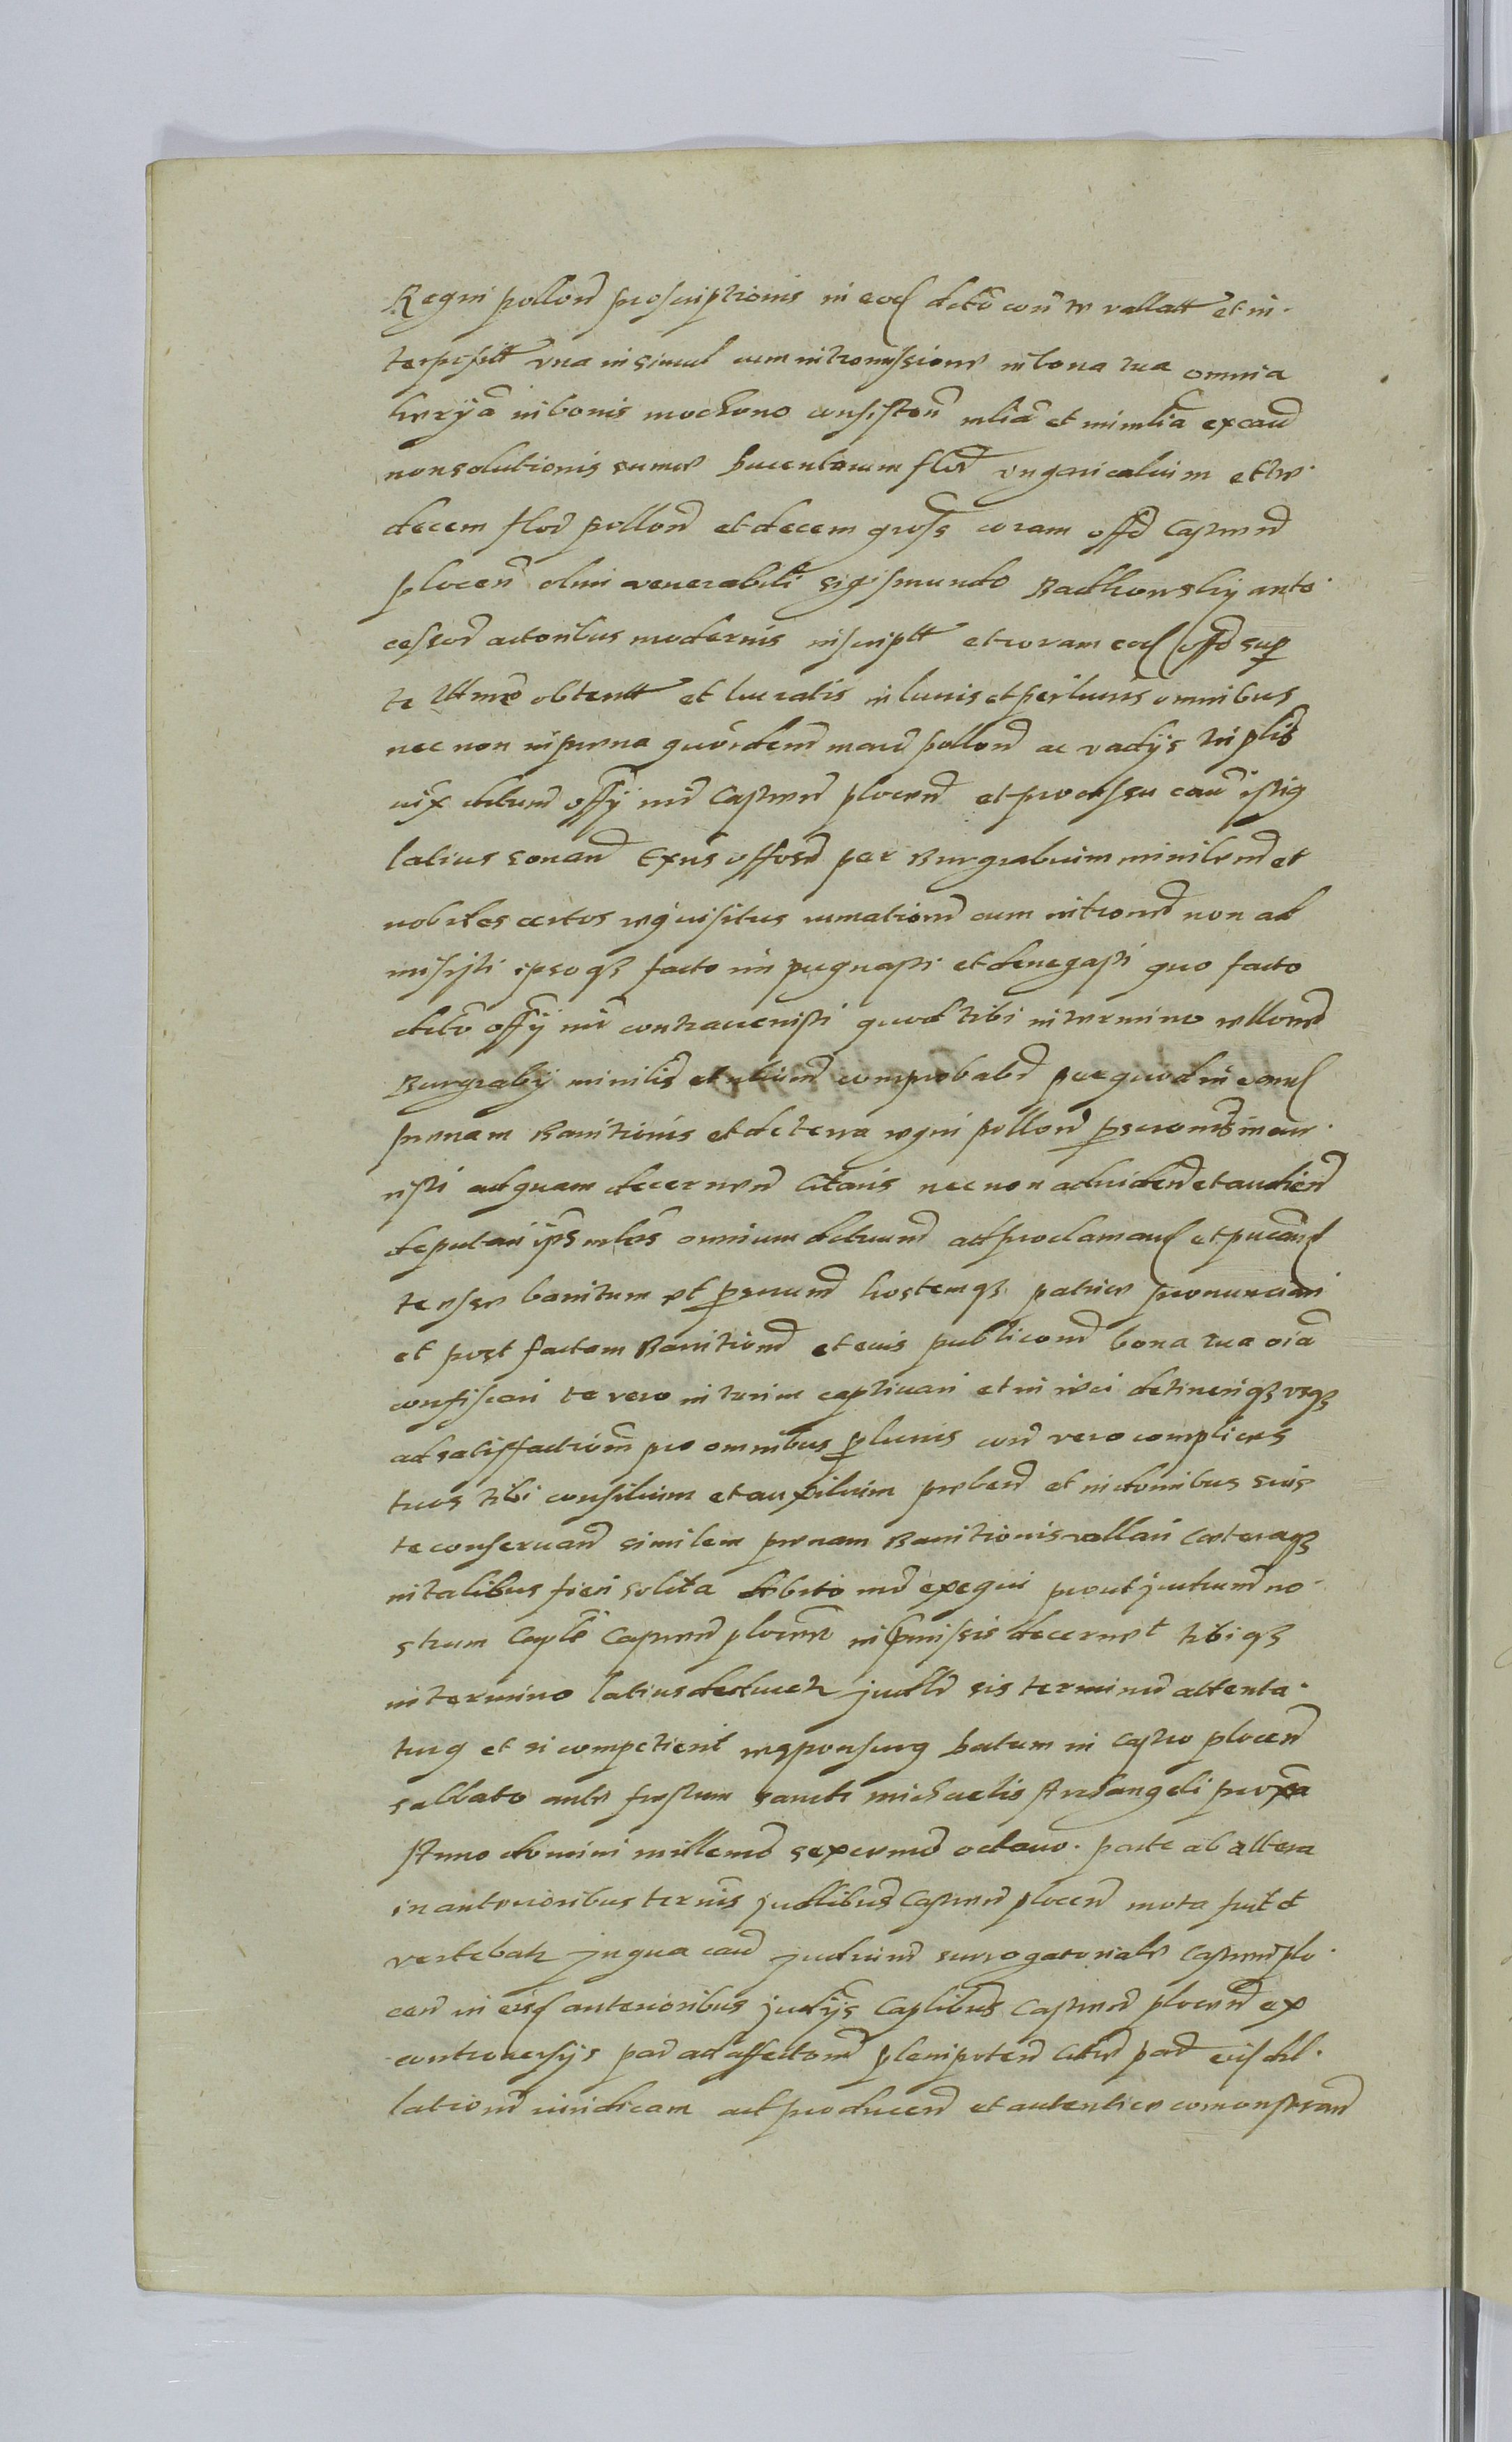 Regni pollon proscriptionis in eod dcto con te vallatt et in-
terpositt vna insimul cum intromissione in bona tua omnia
hereda in bonis mochowo consisten mlia et inmlia ex cau
non solutionis summe Ducentorum flor vngaricalium et tre-
decem flor pollon et decem gross coram offo Castren
plocen olim venerabili Sigismundo Radkowsky ante-
cessor actoribus modernis inscriptt et coram eod offo sup
te obtentt et lucratis in lucris et perlucris omnibus
nec non in pœna quordem marc pollon ac vadys triplis
vix dctum offy nri Castren plocen et processu cau istiq
latius sonan Exns offose per Burgrabium minilem et
nobiles certos requisitus rumationem cum intromne non ad
misisti ipsoqz facto impugnasti et denegasti quo facto
dcto offy nri contravenisti quod tibi in termino rellone
Burgraby minilis et nlium comprobabr per quod in eand
pœnam Banitionis et de terra regni pollon pscronis incur-
risti ad quam decernen Citaris nec non ad viden et audien
deputari ips mlos omnium dctrum ad proclaman et pucand
te esse banitum et pscrum hostemqz patrie pronunciari
et post factam Banitionem et eius publiconem bona tua oia
confiscari te vero interim captivari et in vici detineriqz vsqz
ad satisfactionem pro omnibus plucris con vero complices
tuos tibi consilium et auxilium preben et in domibus suis
te conservan similem pœnam Banitionis vallari Cœteraqz
in talibus fieri solita debito mo exequi prout judicium no-
strum Caple Castren plocense in pmissis decernet tibiqz
in termino latius deducetr judlr sis terminum attenta-
turq et si competierit responsurq Datum in Castro plocen
sabbato ante festum Sancti Michaelis Archangeli proxa
Anno domini millemo sexcenmo octavo. parte ab altera
in anterioribus ternis judlibus Castren plocen mota fuit et
vertebatr In qua cau judicium surrogatoriale Castren plo-
cen in eisd anterioribus judiys Caplibus Castren plocen ex
controversys par ad affectonem plenipoten Cite par eius del-
lationem iuridicam ad producen et autentice comonstran